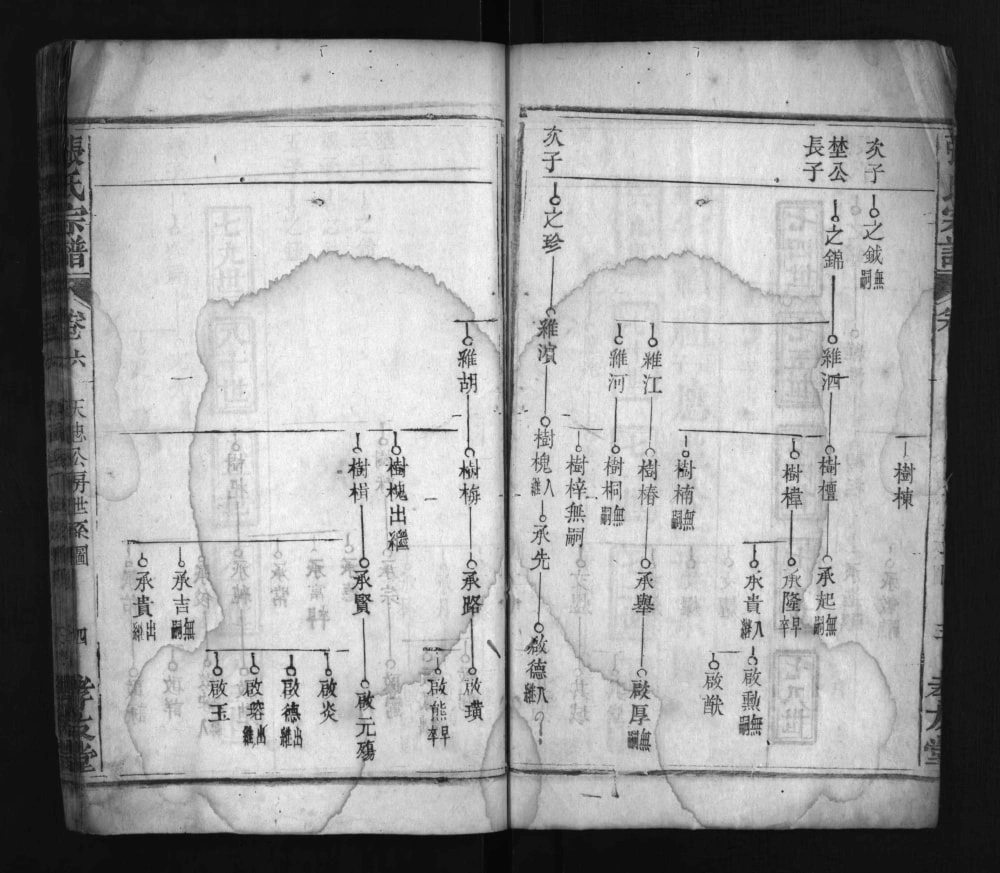 次子
之鉞無嗣
埜公長子
之錦
樹棟
維泗
樹檀
承起無嗣
樹樟
承隆早卒
承貴入繼
啟勳無嗣
啟猷
樹楠無嗣
維江
樹椿
承舉
啟厚無嗣
維河
樹桐無嗣
樹梓無嗣
次子
之珍
維濱
樹槐入繼
承先
啟德入繼
維胡
樹梅
承路
啟璜
啟熊早卒
樹槐出繼
樹楫
承賢
啟元殤
啟炎
啟德出繼
啟瑢出繼
啟玉
承吉無嗣
承貴出繼
張氏宗譜
卷六
天聰公房世系圖
四
孝友堂